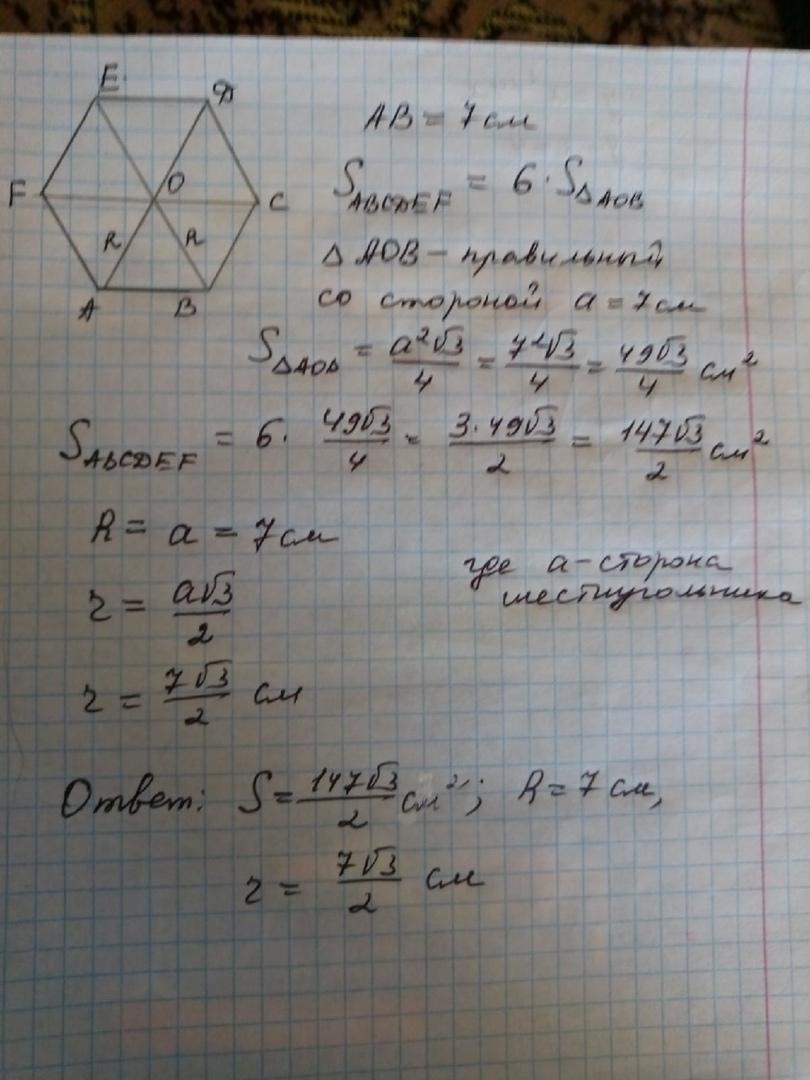 E. D
F O C
R R
A B
AB = 7 см
S_ABCDEF = 6 · S_ΔAOB
Δ AOB – правильный
со стороной a = 7 см
S_ΔAOB = a²√3/4 = 7²√3/4 = 49√3/4 см²
S_ABCDEF = 6 · 49√3/4 = 3·49√3/2 = 147√3/2 см²
R = a = 7 см
где a – сторона
шестиугольника
r = a√3/2
r = 7√3/2 см
Ответ: S = 147√3/2 см²; R = 7 см,
r = 7√3/2 см